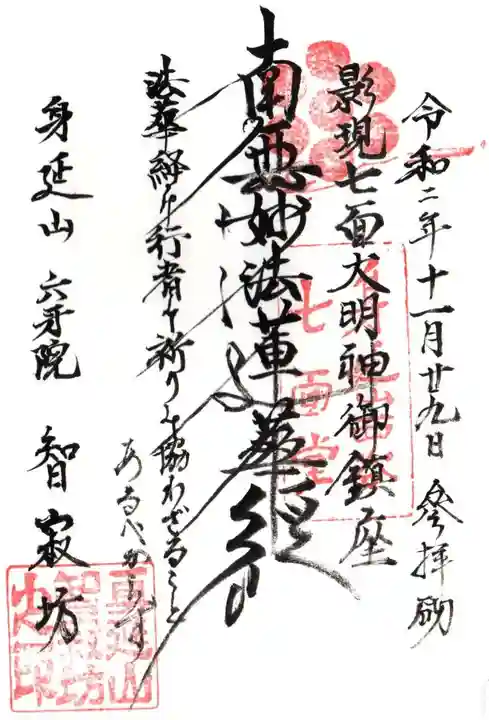 令和二年十一月廿九日 参拝砌
影現七面大明神御鎮座
七面堂
南無妙法蓮華経
法華経の行者の祈りの協わざること
あるべからず
身延山 六牙院 智寂坊